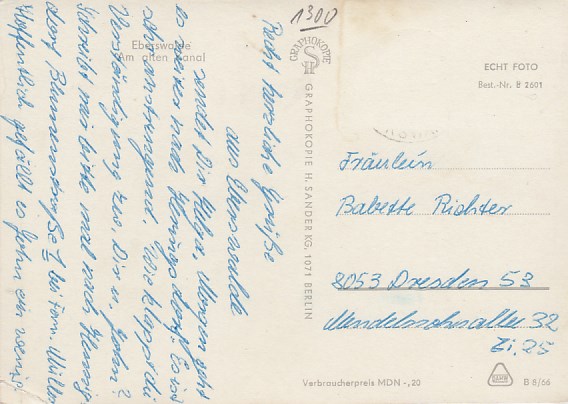 1300
Eberswalde
Am alten Kanal
Recht herzliche Grüße
aus Eberswalde
sendet Dir Helga. Morgen geht
es weiter nach Hennigsdorf. Es ist
sehr anstrengend. Wie klappt die
Verständigung zw. Dir u. John?
Schreibt mir bitte mal nach Hennigs
dorf Blumenstraße 1 bei Fam. Müller
Hoffentlich gefällt es John ein wenig
GRAPHOKOPIE
GRAPHOKOPIE H. SANDER KG, 1071 BERLIN
ECHT FOTO
Best.-Nr. B 2601
Fräulein
Babette Richter
8053 Dresden 53
Mendelssohnallee 32
Zi. 25
Verbraucherpreis MDN -,20
B 8/66